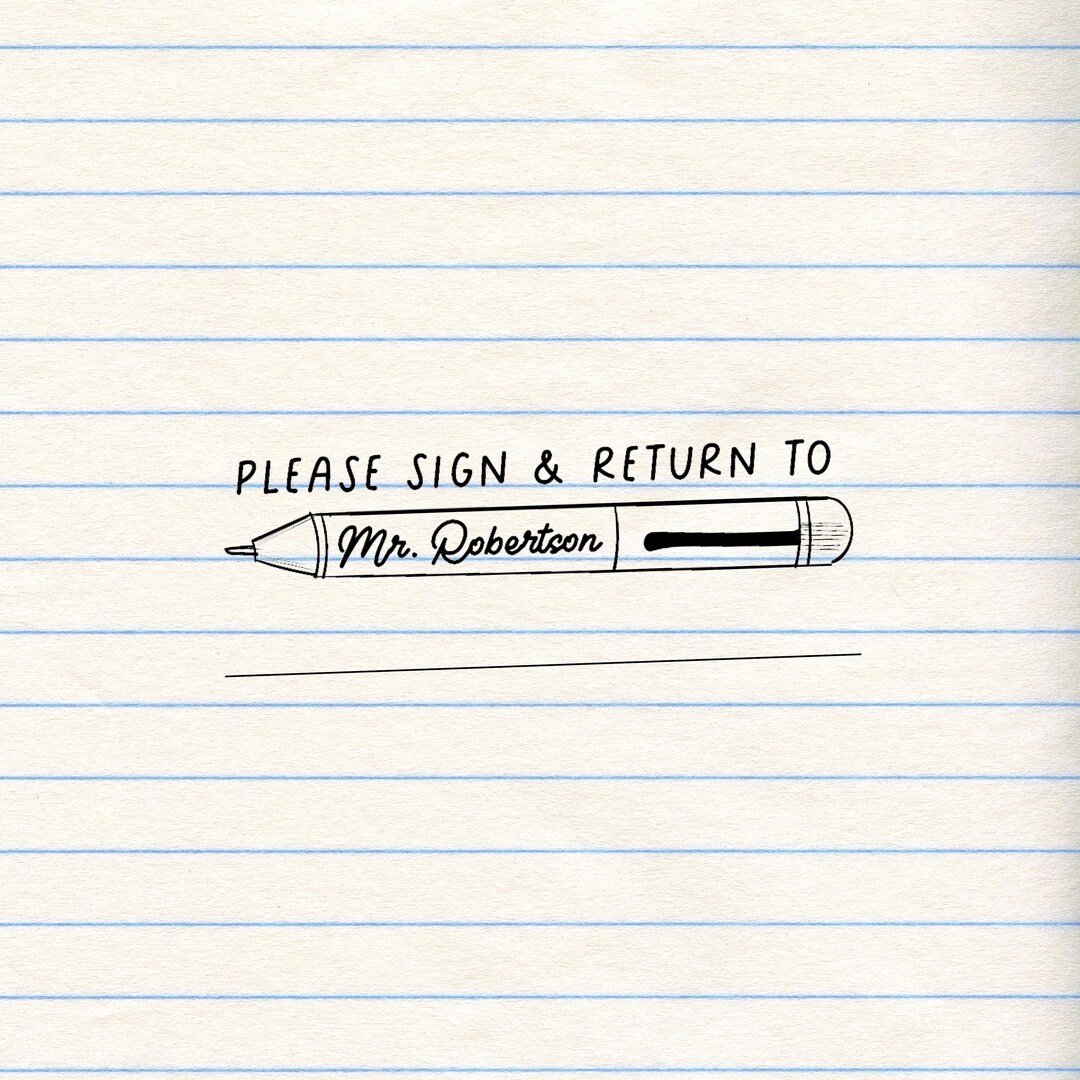 PLEASE SIGN & RETURN TO
Mr. Robertson